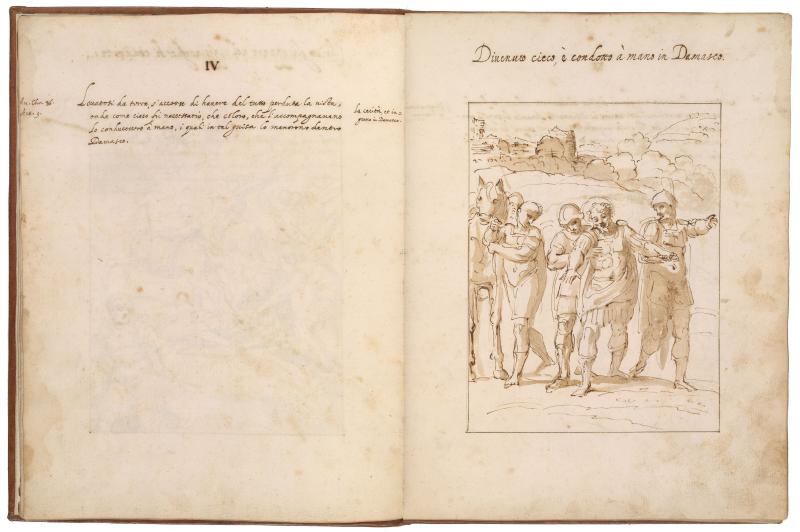 IV
An. Chr. 36.
Act. 9.
Levatosi da terra, s'accorse di havere del tutto perduta la vista,
onde come cieco fù necessario, che coloro, che l'accompagnavano
lo conducessero à mano, i quali in tal guisa lo menorono dentro
Damasco.
La cecità, et in=
gresso in Damasco.
Divenuto cieco, è condotto à mano in Damasco.